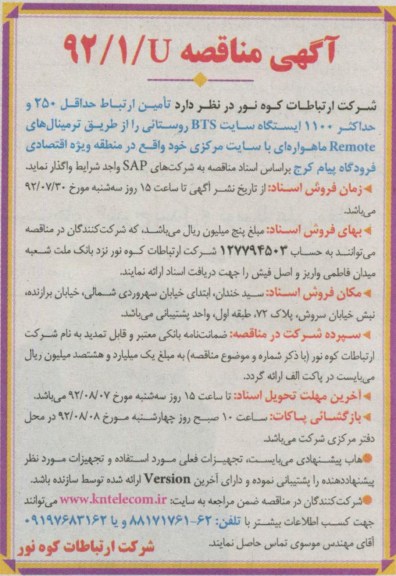 آگهی مناقصه ۹۲/۱/U
شرکت ارتباطات کوه نور در نظر دارد تأمین ارتباط حداقل ۲۵۰ و
حداکثر ۱۱۰۰ ایستگاه سایت BTS روستائی را از طریق ترمینال‌های
Remote ماهواره‌ای با سایت مرکزی خود واقع در منطقه ویژه اقتصادی
فرودگاه پیام کرج براساس اسناد مناقصه به شرکت‌های SAP واجد شرایط واگذار نماید.
◄زمان فروش اسناد: از تاریخ نشر آگهی تا ساعت ۱۵ روز سه‌شنبه مورخ ۹۲/۰۷/۳۰
می‌باشد.
◄بهای فروش اسناد: مبلغ پنج میلیون ریال می‌باشد، که شرکت‌کنندگان در مناقصه
می‌توانند به حساب ۱۲۷۷۹۴۵۰۳ شرکت ارتباطات کوه نور نزد بانک ملت شعبه
میدان فاطمی واریز و اصل فیش را جهت دریافت اسناد ارائه نمایند.
◄مکان فروش اسناد: سید خندان، ابتدای خیابان سهروردی شمالی، خیابان برازنده،
نبش خیابان سروش، پلاک ۷۲، طبقه اول، واحد پشتیبانی می‌باشد.
◄سپرده شرکت در مناقصه: ضمانت‌نامه بانکی معتبر و قابل تمدید به نام شرکت
ارتباطات کوه نور (با ذکر شماره و موضوع مناقصه) به مبلغ یک میلیارد و هشتصد میلیون ریال
می‌بایست در پاکت الف ارائه گردد.
◄آخرین مهلت تحویل اسناد: تا ساعت ۱۵ روز سه‌شنبه مورخ ۹۲/۰۸/۰۷ می‌باشد.
◄بازگشائی پاکات: ساعت ۱۰ صبح روز چهارشنبه مورخ ۹۲/۰۸/۰۸ در محل
دفتر مرکزی شرکت می‌باشد.
●هاب پیشنهادی می‌بایست، تجهیزات فعلی مورد استفاده و تجهیزات مورد نظر
پیشنهاددهنده را پشتیبانی نموده و دارای آخرین Version ارائه شده توسط سازنده باشد.
●شرکت‌کنندگان در مناقصه ضمن مراجعه به سایت: www.kntelecom.ir می‌توانند
جهت کسب اطلاعات بیشتر با تلفن: ۶۲-۸۸۱۷۱۷۶۱ و یا ۰۹۱۹۷۶۸۳۱۶۲
آقای مهندس موسوی تماس حاصل نمایند.
شرکت ارتباطات کوه نور